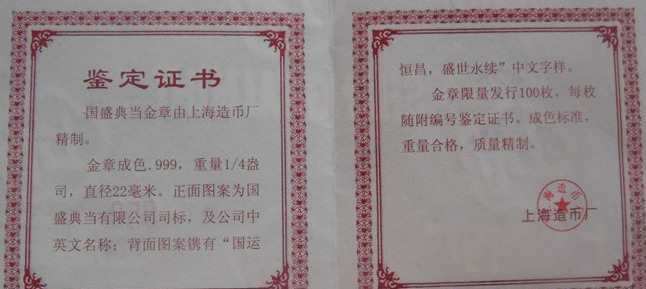 鉴定证书
国盛典当金章由上海造币厂
精制。
金章成色.999，重量1/4盎
司，直径22毫米。正面图案为国
盛典当有限公司司标，及公司中
英文名称；背面图案镌有“国运
恒昌，盛世永续”中文字样。
金章限量发行100枚，每枚
随附编号鉴定证书。成色标准，
重量合格，质量精制。
上海造币厂